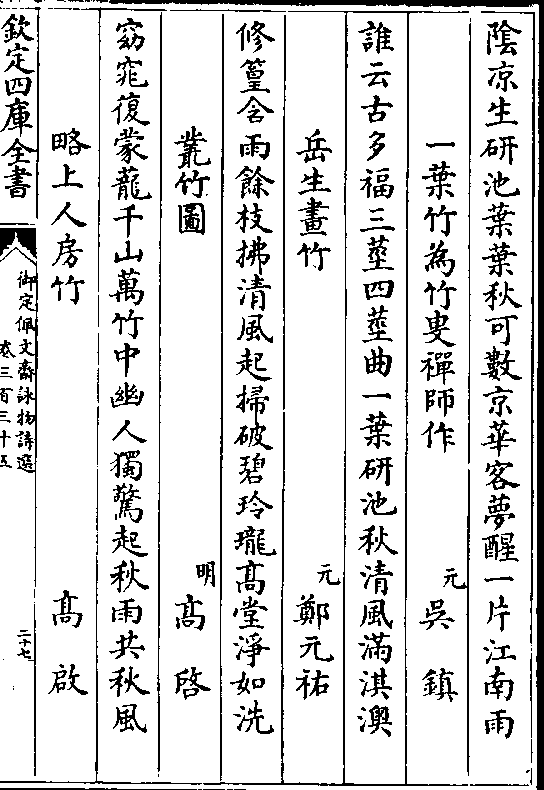 陰凉生研池葉葉秋可數京華客夢醒一片江南雨
一葉竹為竹叟禪師作 元 吳鎮
誰云古多福三莖四莖曲一葉研池秋清風滿淇澳
岳生畫竹 元 鄭元祐
修篁含雨餘枝拂清風起掃破碧玲瓏髙堂淨如洗
叢竹圖 明 髙啓
窈窕復蒙蘢千山萬竹中幽人獨驚起秋雨共秋風
略上人房竹 髙啟
欽定四庫全書
御定佩文齋詠物詩選
卷三百三十五
二十七